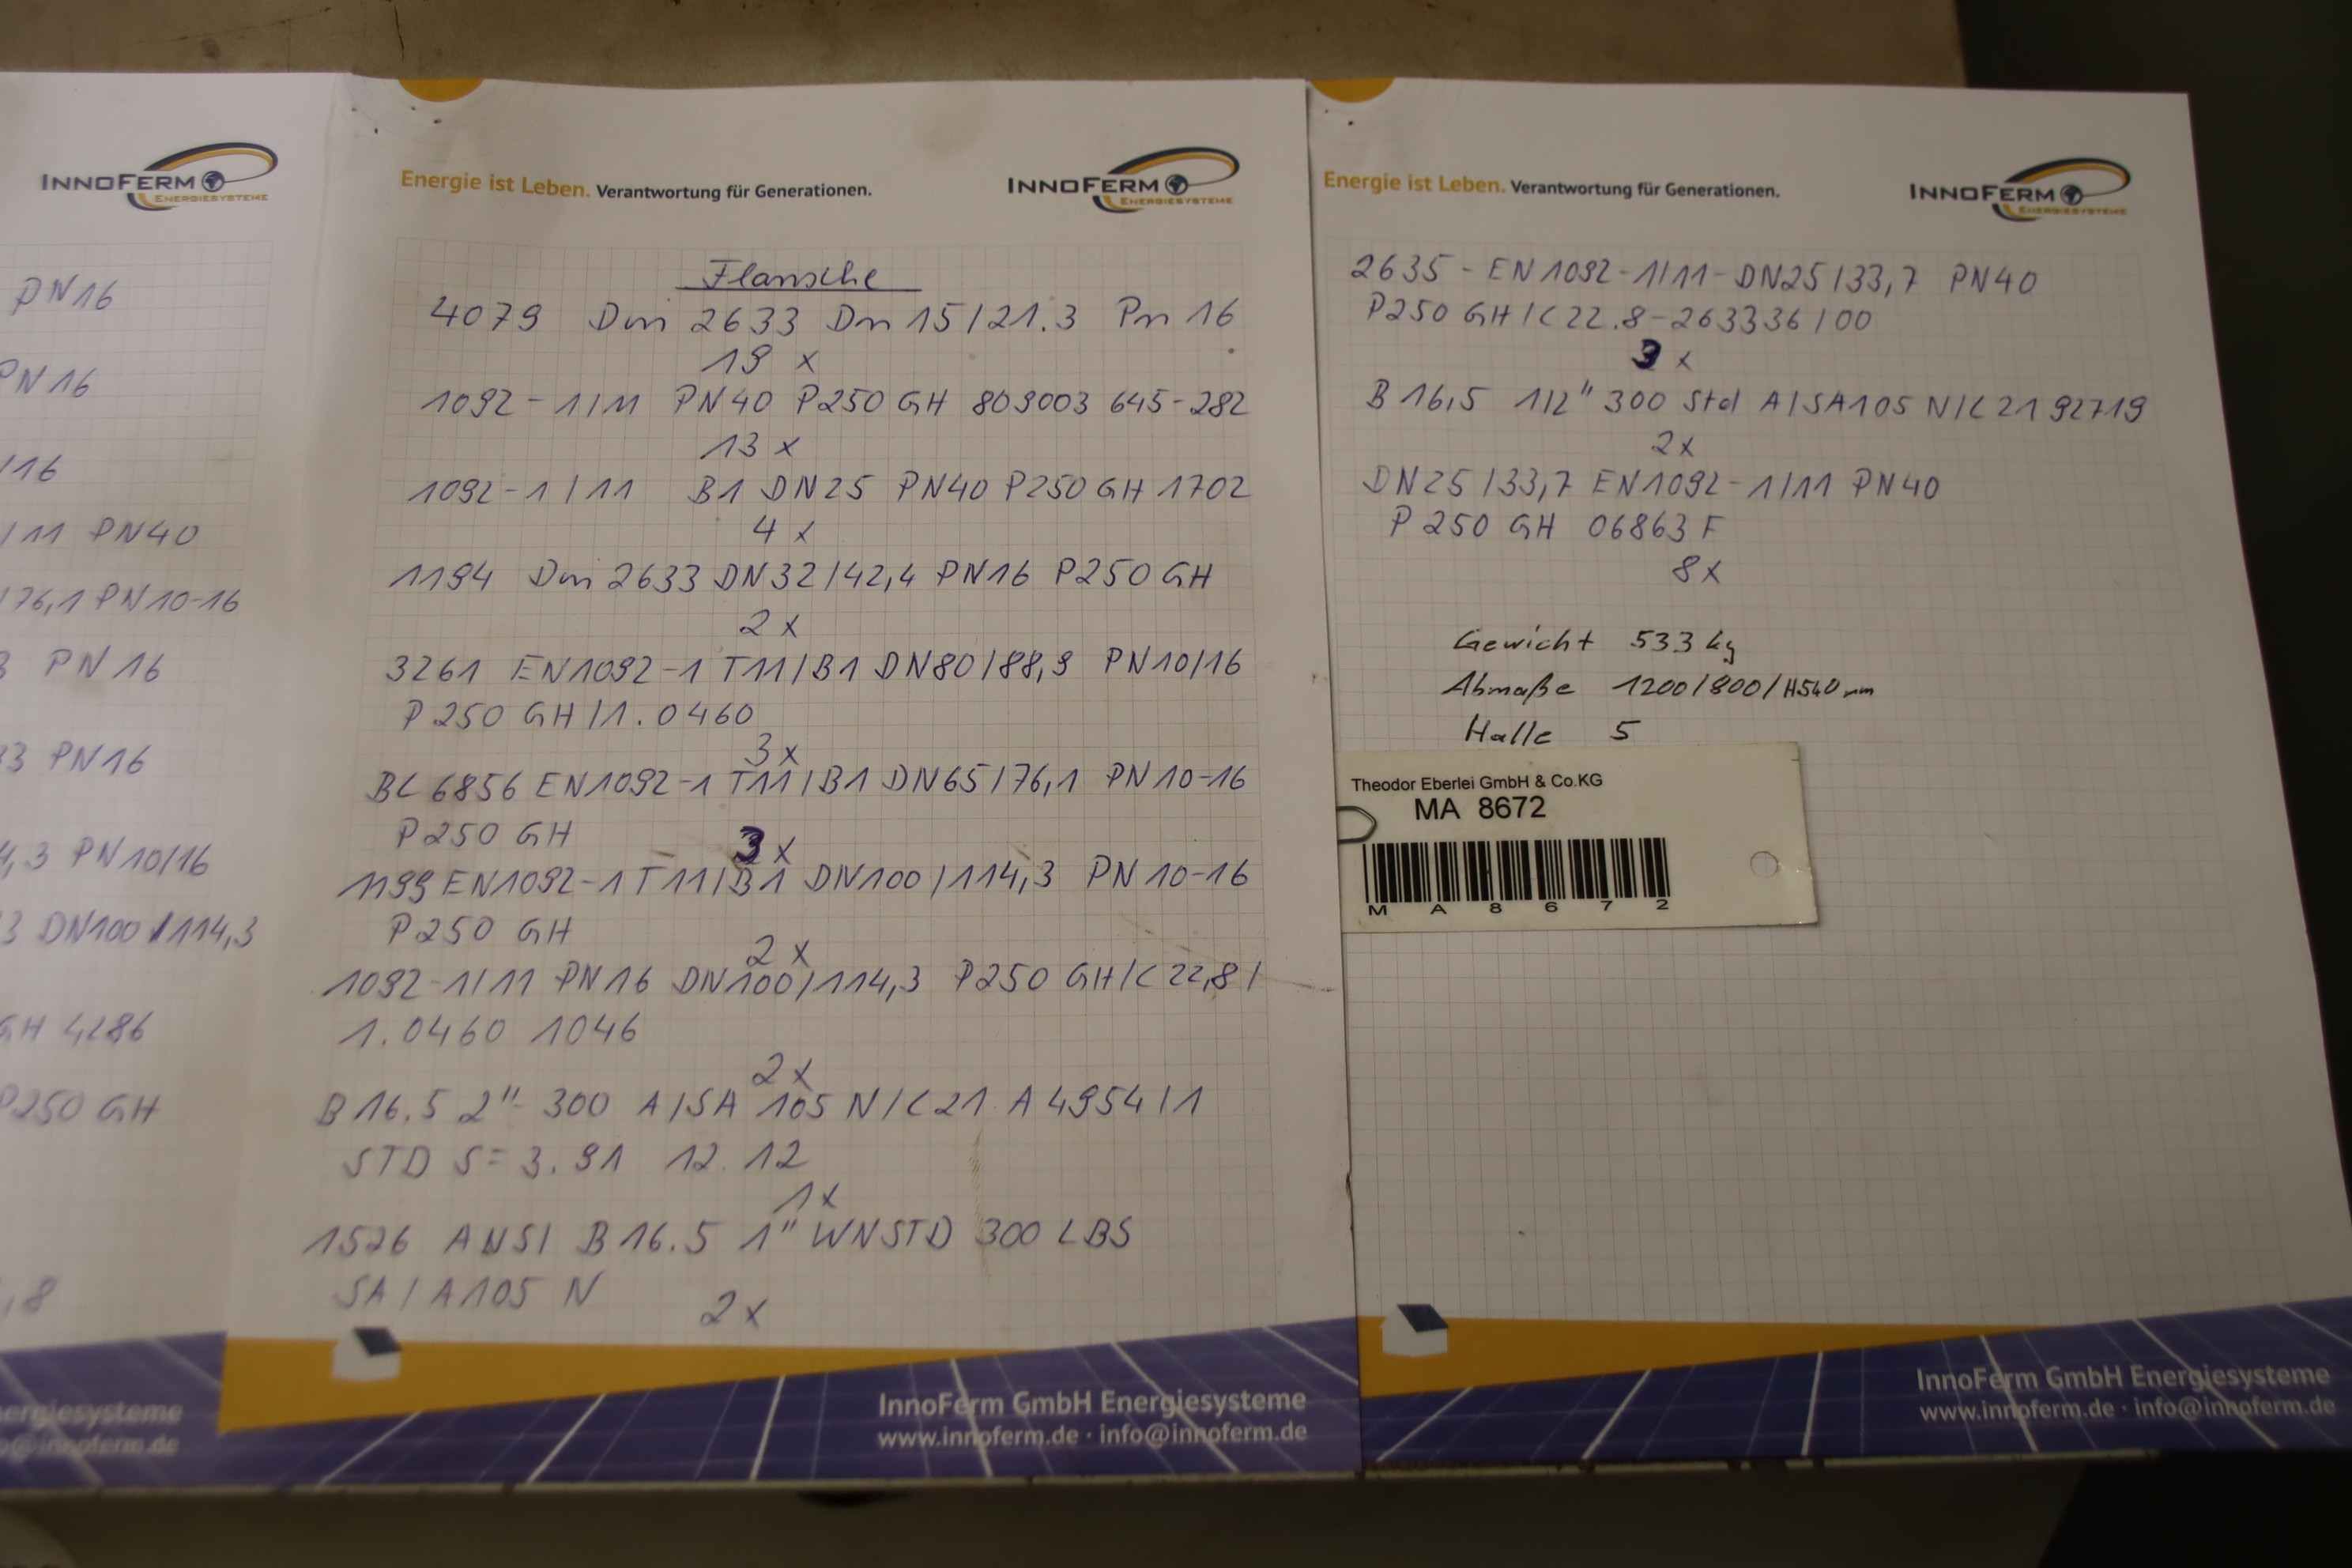 INNOFERM
ENERGIESYSTEME
PN16
PN16
/16
/11 PN40
176,1 PN10-16
3 PN16
33 PN16
4,3 PN10/16
3 DN100/114,3
GH 4286
P250 GH
,8
ergiesysteme
@innoferm.de
Energie ist Leben. Verantwortung für Generationen.
INNOFERM
ENERGIESYSTEME
Flansche
4079 Din 2633 Dn 15/21.3 Pn 16
19 x
1092-1/11 PN40 P250 GH 809003 645-282
13 x
1092-1/11 B1 DN25 PN40 P250 GH 1702
4 x
1194 Din 2633 DN32/42,4 PN16 P250 GH
2 x
3261 EN1092-1 T11/B1 DN80/88,9 PN10/16
P250 GH/1.0460
3 x
BL 6856 EN1092-1 T11/B1 DN65/76,1 PN10-16
P250 GH
3 x
1199 EN1092-1 T11/B1 DN100/114,3 PN10-16
P250 GH
2 x
1092-1/11 PN16 DN100/114,3 P250 GH/C22,8/
1.0460 1046
2 x
B16.5 2" 300 A/SA 105 N/C21 A4954/1
STD S=3.91 12.12
1x
1526 ANSI B16.5 1" WNSTD 300 LBS
SA/A105 N
2 x
InnoFerm GmbH Energiesysteme
www.innoferm.de · info@innoferm.de
Energie ist Leben. Verantwortung für Generationen.
INNOFERM
ENERGIESYSTEME
2635-EN1092-1/11-DN25/33,7 PN40
P250 GH/C22.8-263336/00
3 x
B16,5 1/2" 300 Std A/SA105 N/C21 92719
2x
DN25/33,7 EN1092-1/11 PN40
P250 GH 06863 F
8x
Gewicht 533 kg
Abmaße 1200/800/H540 mm
Halle 5
Theodor Eberlei GmbH & Co.KG
MA 8672
M A 8 6 7 2
InnoFerm GmbH Energiesysteme
www.innoferm.de · info@innoferm.de